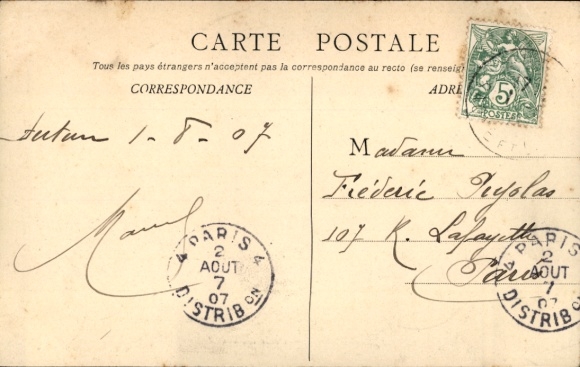 CARTE POSTALE
Tous les pays étrangers n'acceptent pas la correspondance au recto (se renseig
CORRESPONDANCE
ADRE
5c
POSTES
Autun 1-8-07
Madame
Fréderic Puyolas
107 R. Lafayette
Paris
Marcel
4 PARIS 4
2
AOUT
7
07
DISTRIBON
4 PARIS
2
AOUT
7
07
DISTRIBON